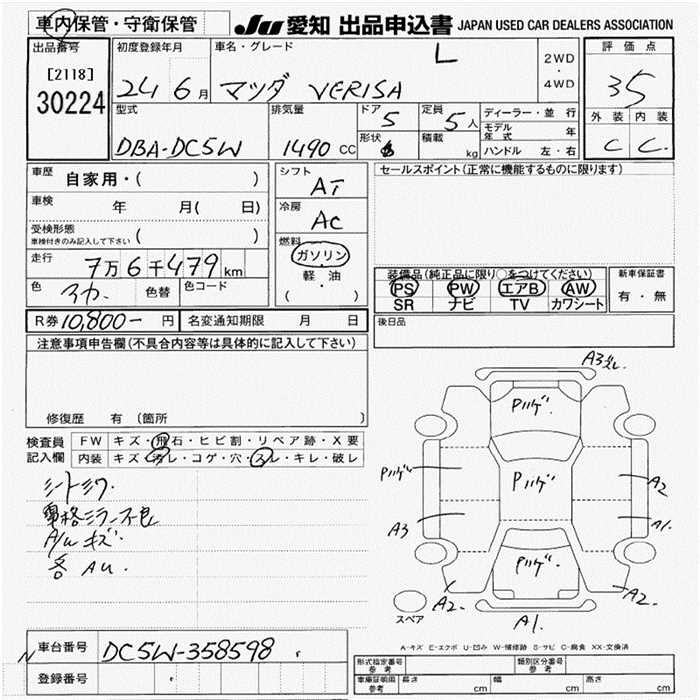 車内保管・守衛保管
JU 愛知 出品申込書 JAPAN USED CAR DEALERS ASSOCIATION
出品番号
[2118]
30224
初度登録年月
24 6月
車名・グレード
マツダ VERISA L
2WD
・
4WD
評価点
35
外装 内装
C C.
型式
DBA-DC5W
排気量
1490 CC
ドア
5
形状
定員
5人
積載
kg
ディーラー・並行
モデル年式 年
ハンドル 左・右
車歴 自家用・( )
車検 年 月( 日)
受検形態
車検付きのみ記入して下さい ( )
走行 7万6千479km
色 色替 色コード
シフト
AT
冷房
AC
燃料
ガソリン
軽・油
( )
セールスポイント(正常に機能するものに限ります)
装備品(純正品に限り○をつけてください)
PS PW エアB AW
SR ナビ TV カワシート
新車保証書
有・無
R券 10,800- 円 名変通知期限 月 日
後日品
注意事項申告欄(不具合内容等は具体的に記入して下さい)
修復歴 有 (箇所 )
検査員記入欄
FW キズ・飛石・ヒビ割・リペア跡・X要
内装 キズ・汚レ・コゲ・穴・スレ・キレ・破レ
シートシワ.
A/w キズ.
各 AU.
A3
Pハゲ
Pハゲ
Pハゲ
A2
A3
A1.
Pハゲ
A2.
A2.
A1.
スペア
A-キズ E-エクボ U-凹み W-補修跡 S-サビ C-腐食 XX-交換済
車台番号 DC5W-358598
登録番号
型式指定番号 参考
類別区分番号 参考
車庫証明用 参考
長さ cm 幅 cm 高さ cm